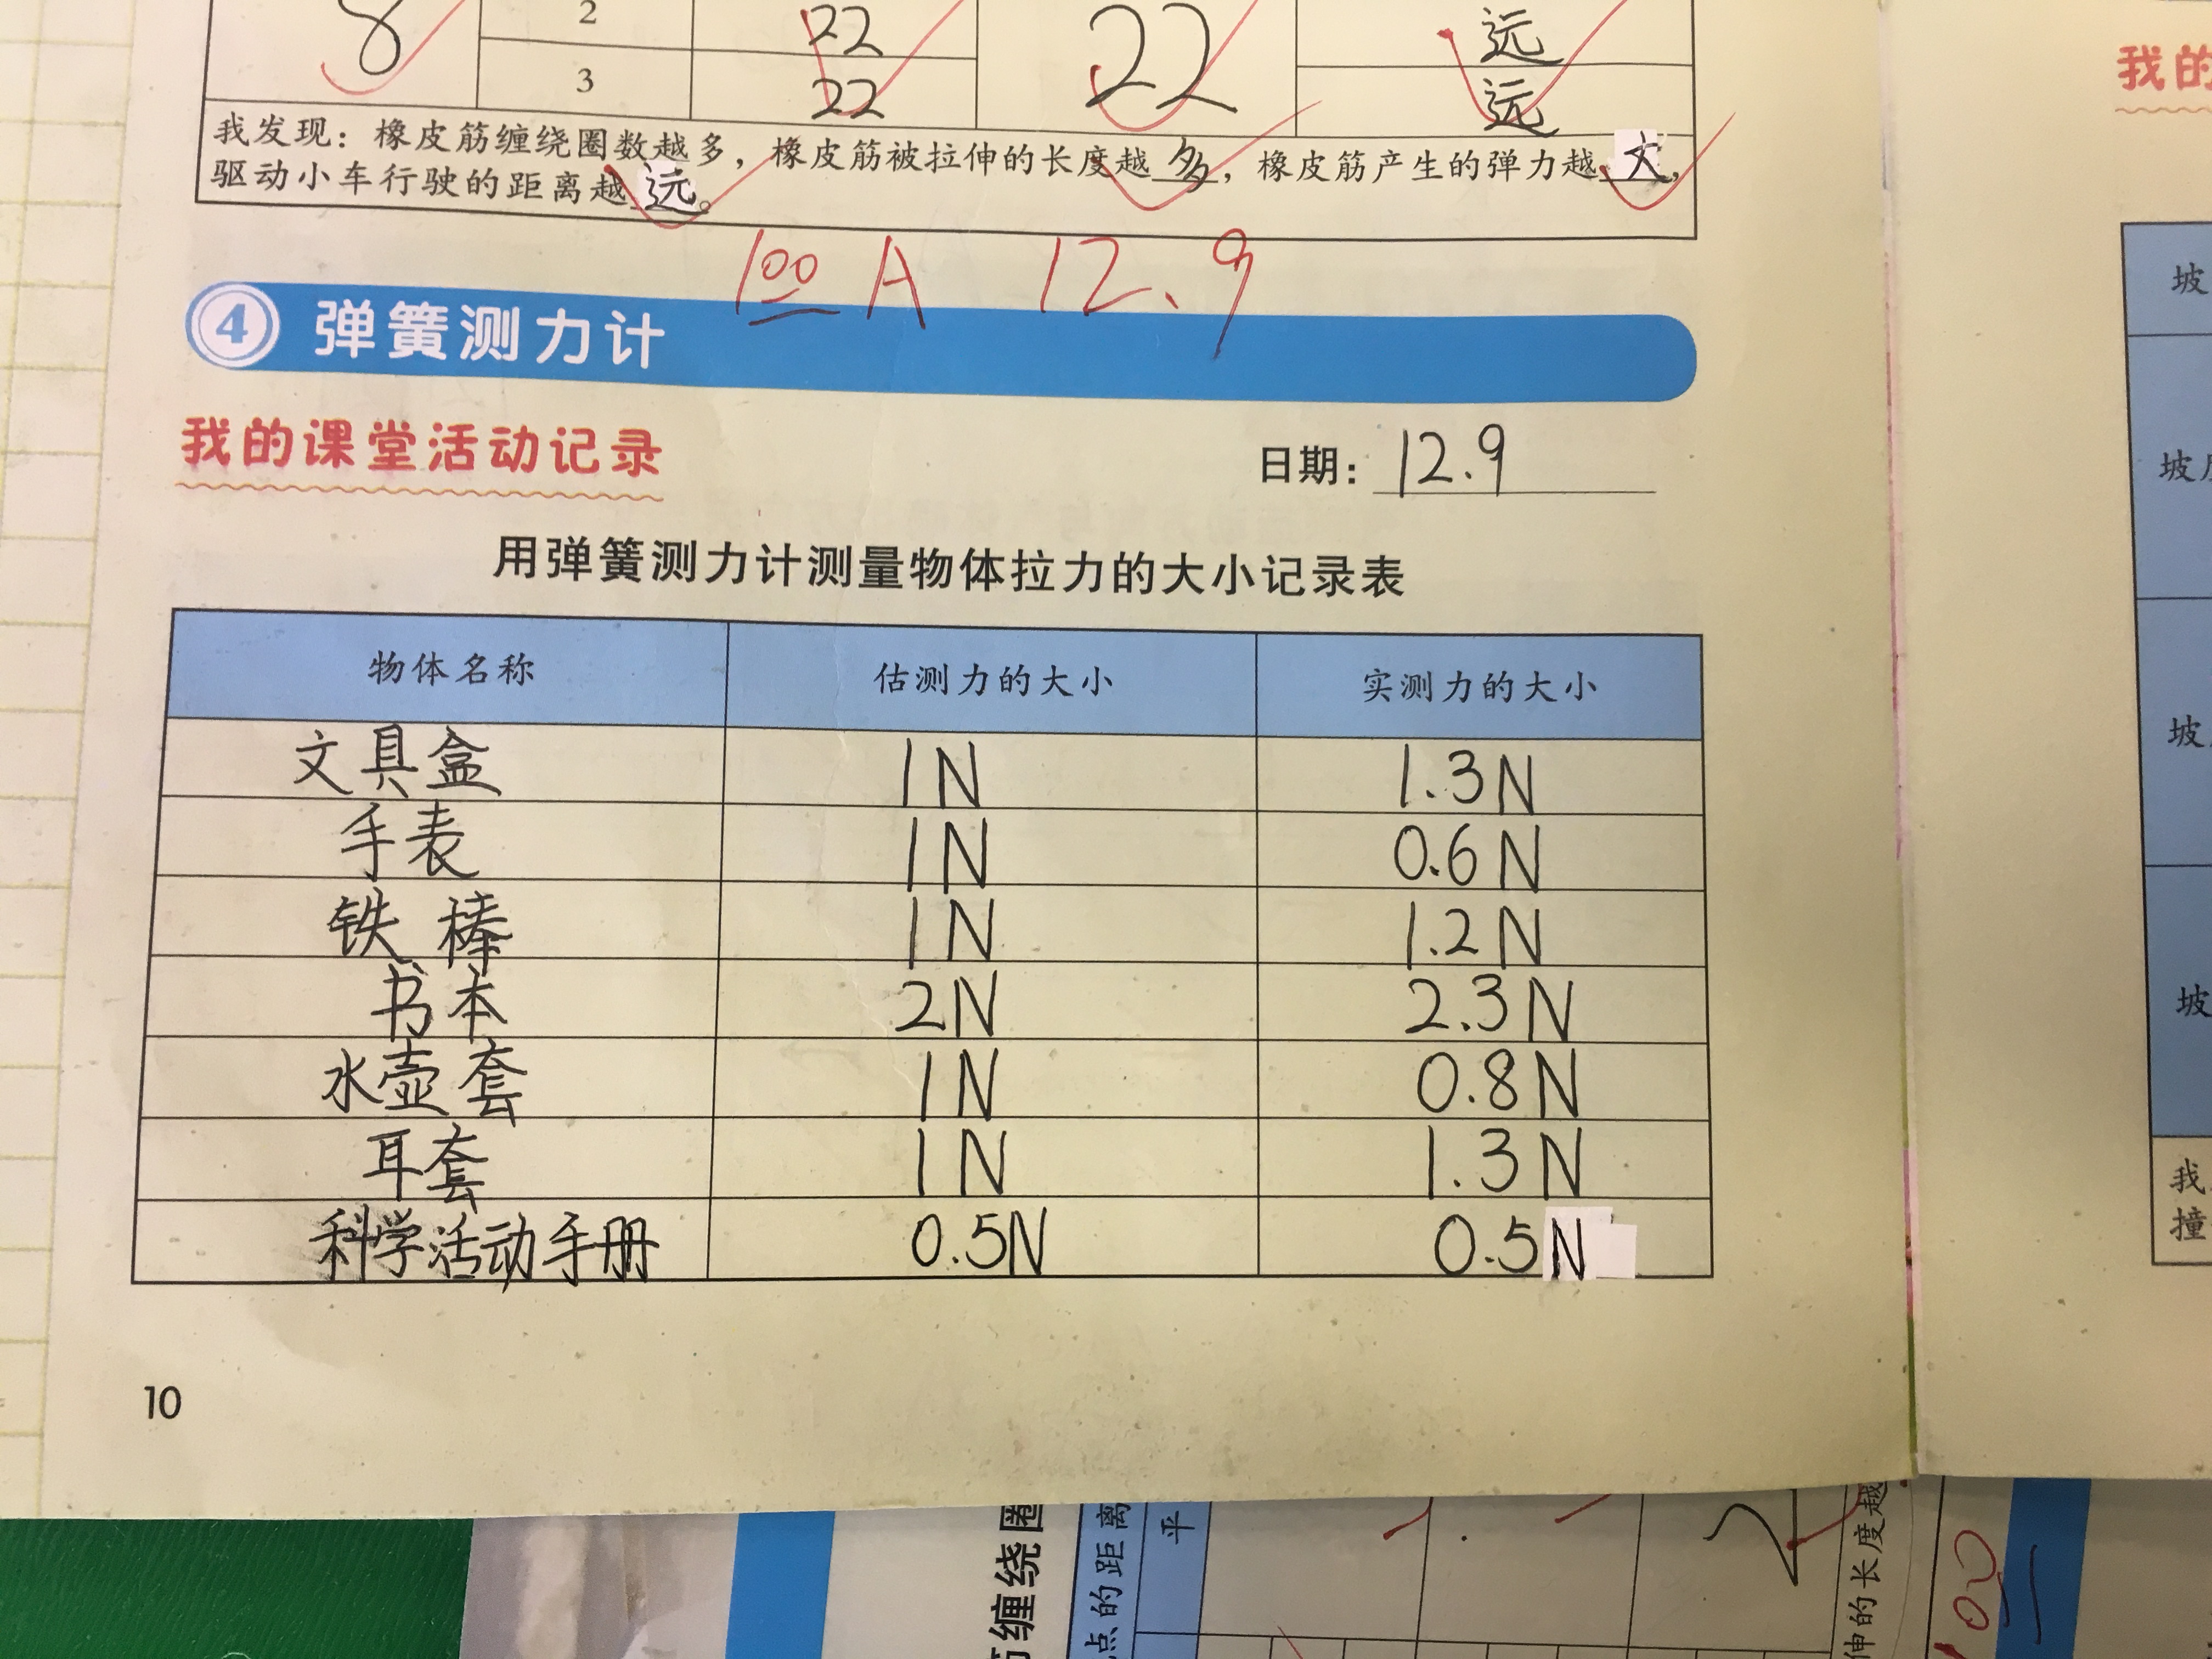 8 2 22 22 远
3 22 远
我发现：橡皮筋缠绕圈数越多，橡皮筋被拉伸的长度越多，橡皮筋产生的弹力越大，
驱动小车行驶的距离越远。
100 A 12.9
4 弹簧测力计
我的课堂活动记录 日期：12.9
用弹簧测力计测量物体拉力的大小记录表
物体名称 估测力的大小 实测力的大小
文具盒 1N 1.3N
手表 1N 0.6N
铁棒 1N 1.2N
书本 2N 2.3N
水壶套 1N 0.8N
耳套 1N 1.3N
科学活动手册 0.5N 0.5N
10
我的
坡
坡
坡
坡
我
撞
缠绕圈
点的距离
平
2
伸的长度越
100